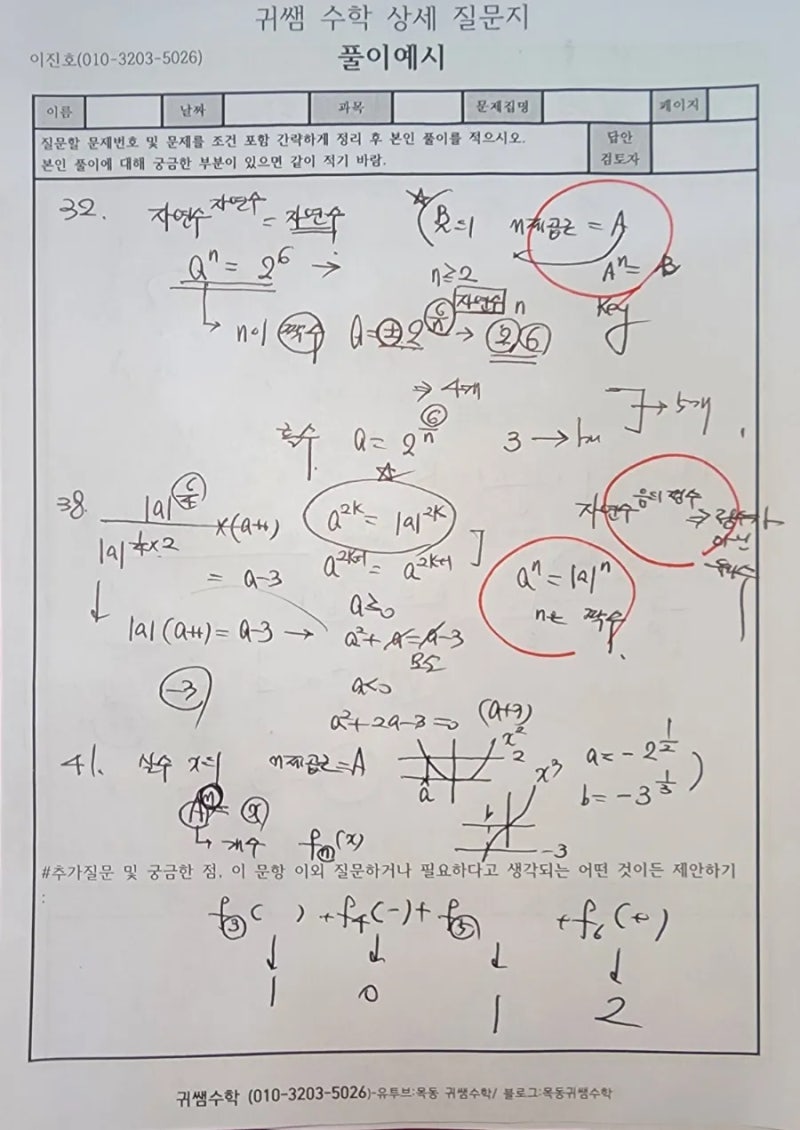 귀쌤 수학 상세 질문지
이진호(010-3203-5026)
풀이예시
이름 날짜 과목 문제집명 페이지
질문할 문제번호 및 문제를 조건 포함 간략하게 정리 후 본인 풀이를 적으시오.
본인 풀이에 대해 궁금한 부분이 있으면 같이 적기 바람.
답안
검토자
32. 자연수^자연수 = 자연수
n제곱근 = A
aⁿ = 2⁶ →
n≥2
Aⁿ = B
Key
자연수 n
n이 짝수 a = ±2^(6/n) → 2, 6
⇒ 4개
홀수 a = 2^(6/n) 3 → → 5개
38.
×(a+1)
= a-3
a^2k = |a|^2k
자연수^음의 정수 ⇒
아닌
유리수
aⁿ = |a|ⁿ
n은 짝수
a≥0
|a|(a+1) = a-3 →
a²+a=a-3
모순
-3
a<0
a²+2a-3=0
41. 실수 x의 n제곱근=A
x²
2
a
a = -2^(1/2)
x³
b = -3^(1/3)
Aⁿ = x
b
개수 fn(x)
-3
#추가질문 및 궁금한 점, 이 문항 이외 질문하거나 필요하다고 생각되는 어떤 것이든 제안하기
:
f₃( ) + f₄(-) + f₅ + f₆(+)
↓ ↓ ↓ ↓
1 0 1 2
귀쌤수학 (010-3203-5026)-유투브:목동 귀쌤수학/ 블로그:목동귀쌤수학